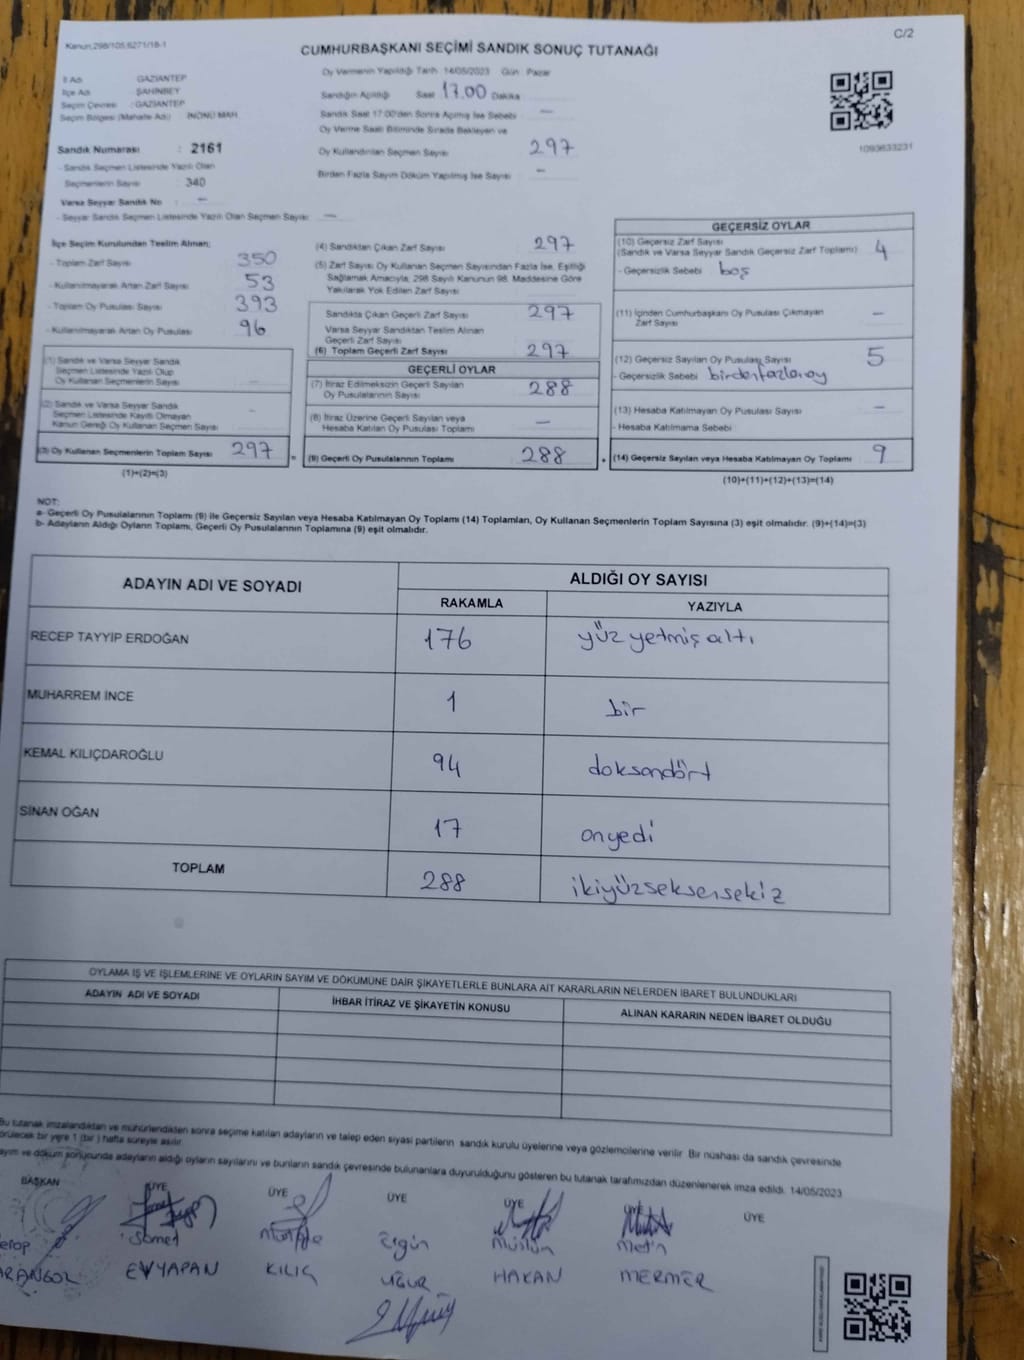 Kanun:298/105,6271/18-1
C/2
CUMHURBAŞKANI SEÇİMİ SANDIK SONUÇ TUTANAĞI
İl Adı : GAZİANTEP
İlçe Adı : ŞAHİNBEY
Seçim Çevresi : GAZİANTEP
Seçim Bölgesi (Mahalle Adı) : İNÖNÜ MAH.
Sandık Numarası : 2161
- Sandık Seçmen Listesinde Yazılı Olan
Seçmenlerin Sayısı : 340
Varsa Seyyar Sandık No : -
- Seyyar Sandık Seçmen Listesinde Yazılı Olan Seçmen Sayısı : -
Oy Vermenin Yapıldığı Tarih : 14/05/2023 Gün : Pazar
Sandığın Açıldığı Saat 17.00 Dakika
Sandık Saat 17:00'den Sonra Açılmış İse Sebebi -
Oy Verme Saati Bitiminde Sırada Bekleyen ve
Oy Kullandırılan Seçmen Sayısı 297
Birden Fazla Sayım Döküm Yapılmış İse Sayısı -
1093633231
İlçe Seçim Kurulundan Teslim Alınan;
- Toplam Zarf Sayısı 350
- Kullanılmayarak Artan Zarf Sayısı 53
- Toplam Oy Pusulası Sayısı 393
- Kullanılmayarak Artan Oy Pusulası 96
(1) Sandık ve Varsa Seyyar Sandık
Seçmen Listesinde Yazılı Olup
Oy Kullanan Seçmenlerin Sayısı -
(2) Sandık ve Varsa Seyyar Sandık
Seçmen Listesinde Kayıtlı Olmayan
Kanun Gereği Oy Kullanan Seçmen Sayısı -
(3) Oy Kullanan Seçmenlerin Toplam Sayısı 297 =
(1)+(2)=(3)
(4) Sandıktan Çıkan Zarf Sayısı 297
(5) Zarf Sayısı Oy Kullanan Seçmen Sayısından Fazla İse, Eşitliği
Sağlamak Amacıyla, 298 Sayılı Kanunun 98. Maddesine Göre
Yakılarak Yok Edilen Zarf Sayısı
Sandıkta Çıkan Geçerli Zarf Sayısı 297
Varsa Seyyar Sandıktan Teslim Alınan
Geçerli Zarf Sayısı
(6) Toplam Geçerli Zarf Sayısı 297
GEÇERLİ OYLAR
(7) İtiraz Edilmeksizin Geçerli Sayılan
Oy Pusulalarının Sayısı 288
(8) İtiraz Üzerine Geçerli Sayılan veya
Hesaba Katılan Oy Pusulası Toplamı -
(9) Geçerli Oy Pusulalarının Toplamı 288 +
GEÇERSİZ OYLAR
(10) Geçersiz Zarf Sayısı
(Sandık ve Varsa Seyyar Sandık Geçersiz Zarf Toplamı) 4
- Geçersizlik Sebebi boş
(11) İçinden Cumhurbaşkanı Oy Pusulası Çıkmayan
Zarf Sayısı -
(12) Geçersiz Sayılan Oy Pusulası Sayısı 5
- Geçersizlik Sebebi birden fazla oy
(13) Hesaba Katılmayan Oy Pusulası Sayısı -
- Hesaba Katılmama Sebebi
(14) Geçersiz Sayılan veya Hesaba Katılmayan Oy Toplamı 9
(10)+(11)+(12)+(13)=(14)
NOT:
a- Geçerli Oy Pusulalarının Toplamı (9) ile Geçersiz Sayılan veya Hesaba Katılmayan Oy Toplamı (14) Toplamları, Oy Kullanan Seçmenlerin Toplam Sayısına (3) eşit olmalıdır. (9)+(14)=(3)
b- Adayların Aldığı Oyların Toplamı, Geçerli Oy Pusulalarının Toplamına (9) eşit olmalıdır.
ADAYIN ADI VE SOYADI ALDIĞI OY SAYISI
RAKAMLA YAZIYLA
RECEP TAYYİP ERDOĞAN 176 yüz yetmiş altı
MUHARREM İNCE 1 bir
KEMAL KILIÇDAROĞLU 94 doksandört
SİNAN OĞAN 17 onyedi
TOPLAM 288 ikiyüzseksensekiz
OYLAMA İŞ VE İŞLEMLERİNE VE OYLARIN SAYIM VE DÖKÜMÜNE DAİR ŞİKAYETLERLE BUNLARA AİT KARARLARIN NELERDEN İBARET BULUNDUKLARI
ADAYIN ADI VE SOYADI İHBAR İTİRAZ VE ŞİKAYETİN KONUSU ALINAN KARARIN NEDEN İBARET OLDUĞU
Bu tutanak imzalandıktan ve mühürlendikten sonra seçime katılan adayların ve talep eden siyasi partilerin sandık kurulu üyelerine veya gözlemcilerine verilir. Bir nüshası da sandık çevresinde
görülecek bir yere 1 (bir) hafta süreyle asılır.
Sayım ve döküm sonucunda adayların aldığı oyların sayılarını ve bunların sandık çevresinde bulunanlara duyurulduğunu gösteren bu tutanak tarafımızdan düzenlenerek imza edildi. 14/05/2023
BAŞKAN ÜYE ÜYE ÜYE ÜYE ÜYE ÜYE
Samet Ergün Müslüm Metin
EVYAPAN KILIÇ UĞUR HAKAN MERMER